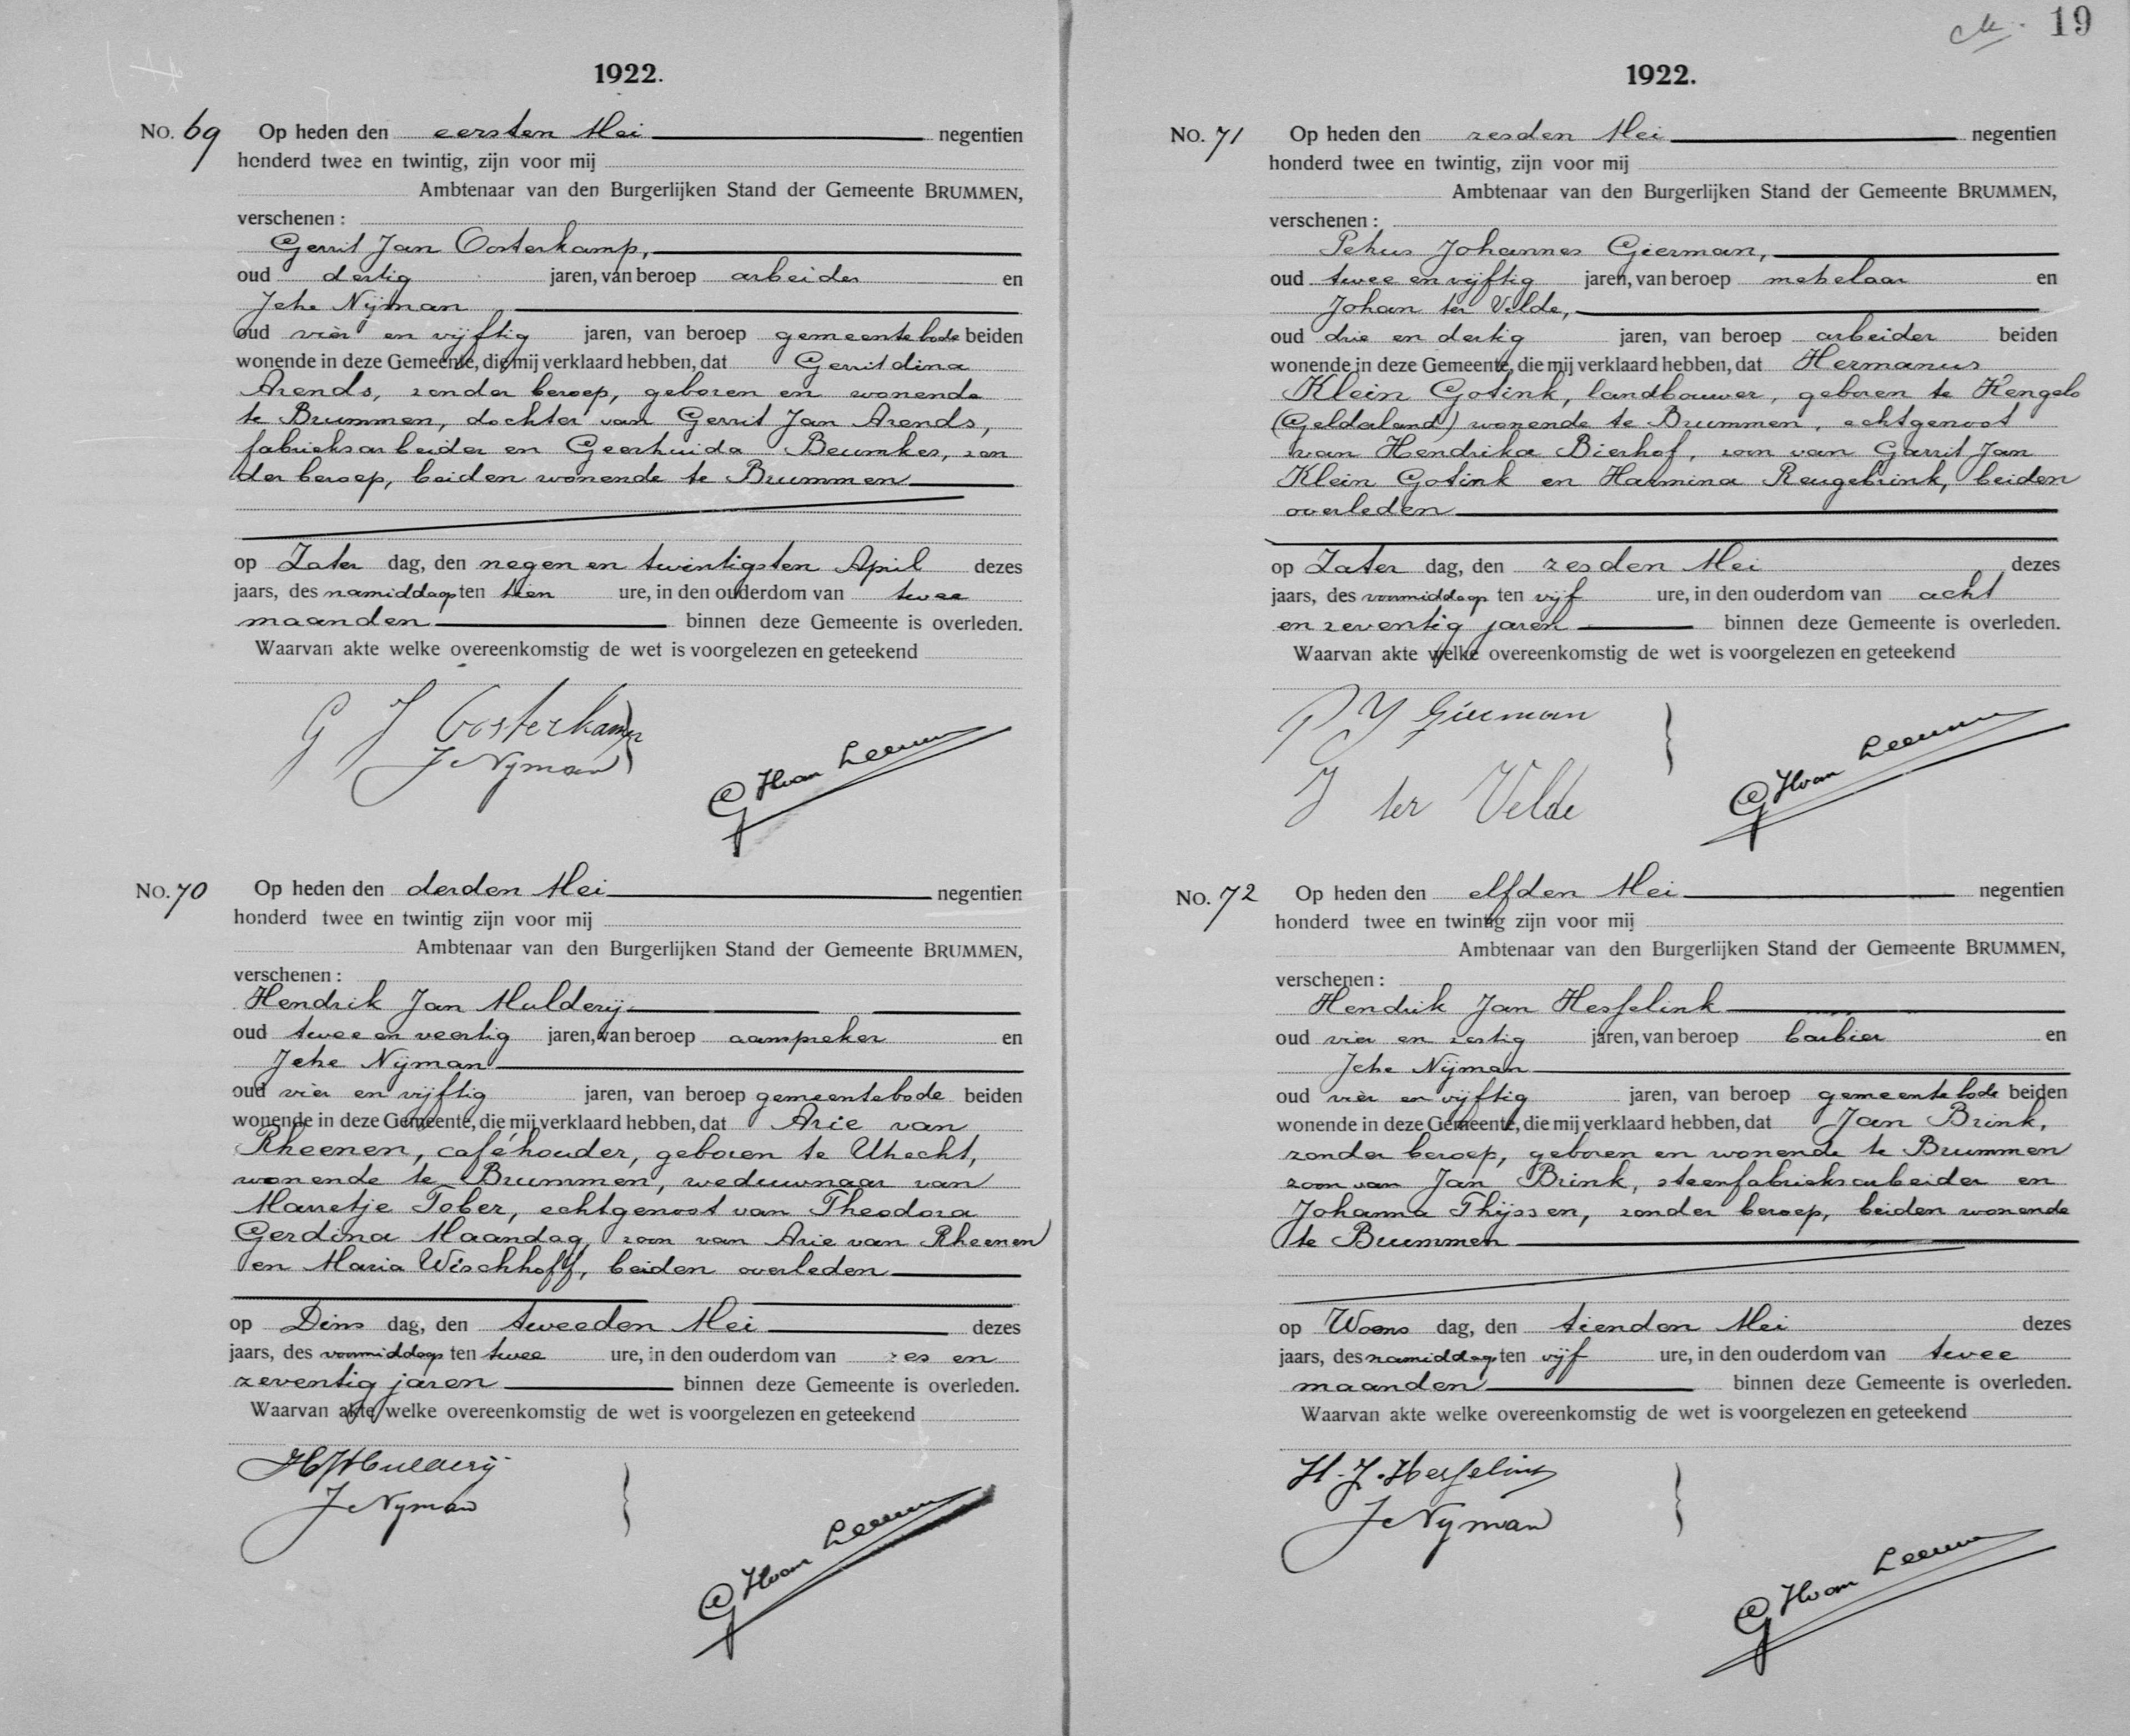 1922.
No. 69 Op heden den eersten Mei negentien
honderd twee en twintig, zijn voor mij
Ambtenaar van den Burgerlijken Stand der Gemeente BRUMMEN,
verschenen :
Gerrit Jan Oosterkamp,
oud dertig jaren, van beroep arbeider en
Jehe Nijman
oud vier en vijftig jaren, van beroep gemeentebode beiden
wonende in deze Gemeente, die mij verklaard hebben, dat Gerritdina
Arends, zonder beroep, geboren en wonende
te Brummen, dochter van Gerrit Jan Arends,
fabrieksarbeider en Geertruida Beumkes, zon
der beroep, beiden wonende te Brummen
op Zater dag, den negen en twintigsten April dezes
jaars, des namiddags ten tien ure, in den ouderdom van twee
maanden binnen deze Gemeente is overleden.
Waarvan akte welke overeenkomstig de wet is voorgelezen en geteekend
G J Oosterkamp
J Nyman
GHvan Leeuwen
No. 70 Op heden den derden Mei negentien
honderd twee en twintig zijn voor mij
Ambtenaar van den Burgerlijken Stand der Gemeente BRUMMEN,
verschenen :
Hendrik Jan Mulderij
oud twee en veertig jaren, van beroep aanspreker en
Jehe Nijman
oud vier en vijftig jaren, van beroep gemeentebode beiden
wonende in deze Gemeente, die mij verklaard hebben, dat Arie van
Rheenen, caféhouder, geboren te Utrecht,
wonende te Brummen, weduwnaar van
Marretje Tober, echtgenoot van Theodora
Gerdina Maandag, zoon van Arie van Rheenen
en Maria Wischhoff, beiden overleden
op Dins dag, den tweeden Mei dezes
jaars, des voormiddags ten twee ure, in den ouderdom van zes en
zeventig jaren binnen deze Gemeente is overleden.
Waarvan akte welke overeenkomstig de wet is voorgelezen en geteekend
HJMulderij
J Nyman
GHvan Leeuwen
19
1922.
No. 71 Op heden den zesden Mei negentien
honderd twee en twintig, zijn voor mij
Ambtenaar van den Burgerlijken Stand der Gemeente BRUMMEN,
verschenen :
Petrus Johannes Gierman,
oud twee en vijftig jaren, van beroep metselaar en
Johan ter Velde,
oud drie en dertig jaren, van beroep arbeider beiden
wonende in deze Gemeente, die mij verklaard hebben, dat Hermanus
Klein Gotink, landbouwer, geboren te Hengelo
(Gelderland) wonende te Brummen, echtgenoot
van Hendrika Bierhof, zoon van Garrit Jan
Klein Gotink en Harmina Reugebrink, beiden
overleden
op Zater dag, den zesden Mei dezes
jaars, des voormiddags ten vijf ure, in den ouderdom van acht
en zeventig jaren binnen deze Gemeente is overleden.
Waarvan akte welke overeenkomstig de wet is voorgelezen en geteekend
P J Gierman
J ter Velde
GHvan Leeuwen
No. 72 Op heden den elfden Mei negentien
honderd twee en twintig zijn voor mij
Ambtenaar van den Burgerlijken Stand der Gemeente BRUMMEN,
verschenen :
Hendrik Jan Hesselink
oud vier en zestig jaren, van beroep barbier en
Jehe Nijman
oud vier en vijftig jaren, van beroep gemeentebode beiden
wonende in deze Gemeente, die mij verklaard hebben, dat Jan Brink,
zonder beroep, geboren en wonende te Brummen
zoon van Jan Brink, steenfabrieksarbeider en
Johanna Thijssen, zonder beroep, beiden wonende
te Brummen
op Woens dag, den tienden Mei dezes
jaars, des namiddags ten vijf ure, in den ouderdom van twee
maanden binnen deze Gemeente is overleden.
Waarvan akte welke overeenkomstig de wet is voorgelezen en geteekend
H. J. Hesselink
J Nyman
GHvan Leeuwen